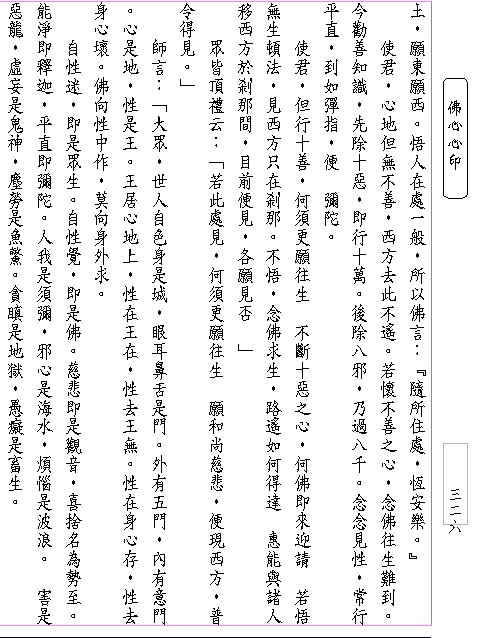 佛心心印
三二六
土，願東願西。悟人在處一般，所以佛言：『隨所住處，恆安樂。』
使君，心地但無不善，西方去此不遙。若懷不善之心，念佛往生難到。
今勸善知識，先除十惡，即行十萬。後除八邪，乃過八千。念念見性，常行
平直，到如彈指，便　彌陀。
使君，但行十善，何須更願往生　不斷十惡之心，何佛即來迎請　若悟
無生頓法，見西方只在剎那。不悟，念佛求生，路遙如何得達　惠能與諸人
移西方於剎那間，目前便見，各願見否　」
眾皆頂禮云：「若此處見，何須更願往生　願和尚慈悲，便現西方，普
令得見。」
師言：「大眾，世人自色身是城，眼耳鼻舌是門。外有五門，內有意門
。心是地，性是王。王居心地上，性在王在，性去王無。性在身心存，性去
身心壞。佛向性中作，莫向身外求。
自性迷，即是眾生。自性覺，即是佛。慈悲即是觀音，喜捨名為勢至。
能淨即釋迦，平直即彌陀。人我是須彌，邪心是海水，煩惱是波浪。　害是
惡龍，虛妄是鬼神，塵勞是魚鱉。貪瞋是地獄，愚癡是畜生。